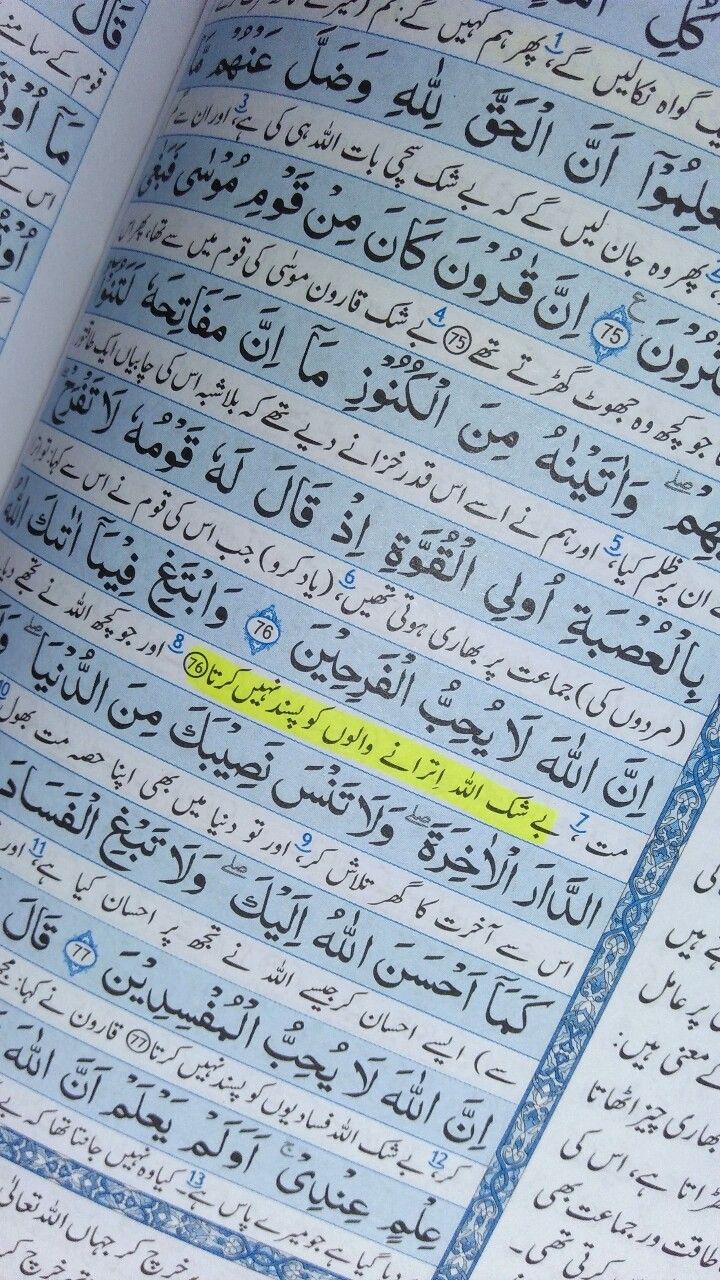 قَالَ
قوم کے سامنے
مَآ اُوْتِيَ
اس کے
كُلِّ
گواہ نکالیں گے 1 پھر ہم کہیں گے: تم
اَنَّ الْحَقَّ لِلّٰهِ وَضَلَّ عَنْهُمْ مَّا
پھر وہ جان لیں گے کہ بے شک سچی بات اللہ ہی کی ہے، 3 اور ان سے
75 اِنَّ قٰرُوْنَ كَانَ مِنْ قَوْمِ مُوْسٰى فَبَغٰى
جو کچھ وہ جھوٹ گھڑتے تھے 75 4 بے شک قارون موسٰی کی قوم میں سے تھا، پھر اس
وَاٰتَيْنٰهُ مِنَ الْكُنُوْزِ مَآ اِنَّ مَفَاتِحَهٗ لَتَنُوْٓاُ
نے ان پر ظلم کیا، 5 اور ہم نے اسے اس قدر خزانے دیے تھے کہ بلاشبہ اس کی چابیاں ایک طاقتور
بِالْعُصْبَةِ اُولِي الْقُوَّةِ اِذْ قَالَ لَهٗ قَوْمُهٗ لَا تَفْرَحْ
(مردوں کی) جماعت پر بھاری ہوتی تھیں، 6 (یاد کرو) جب اس کی قوم نے اس سے کہا: تو اترا
اِنَّ اللّٰهَ لَا يُحِبُّ الْفَرِحِيْنَ 76 وَابْتَغِ فِيْمَآ اٰتٰىكَ اللّٰهُ
مت، 7 بے شک اللہ اِترانے والوں کو پسند نہیں کرتا 76 8 اور جو کچھ اللہ نے تجھے دیا
الدَّارَ الْاٰخِرَةَ وَلَا تَنْسَ نَصِيْبَكَ مِنَ الدُّنْيَا
اس سے آخرت کا گھر تلاش کر، 9 اور تو دنیا میں بھی اپنا حصہ مت بھول 10
كَمَآ اَحْسَنَ اللّٰهُ اِلَيْكَ وَلَا تَبْغِ الْفَسَادَ
سے) ایسے احسان کر جیسے اللہ نے تجھ پر احسان کیا ہے، 11 اور
اِنَّ اللّٰهَ لَا يُحِبُّ الْمُفْسِدِيْنَ 77 قَالَ
کر، 12 بے شک اللہ فسادیوں کو پسند نہیں کرتا 77 قارون نے کہا:
عِلْمٍ عِنْدِيْ اَوَلَمْ يَعْلَمْ اَنَّ اللّٰهَ
دیا گیا ہے جو میرے پاس ہے۔ 13 کیا وہ نہیں جانتا تھا کہ بے
خرچ کر جہاں اللہ تعالٰی
ہیں
پر عامل
کے معنی ہیں:
بھاری چیز اٹھاتا
ہے، اس کی
طاقت ور جماعت بھی
کرتی تھی۔